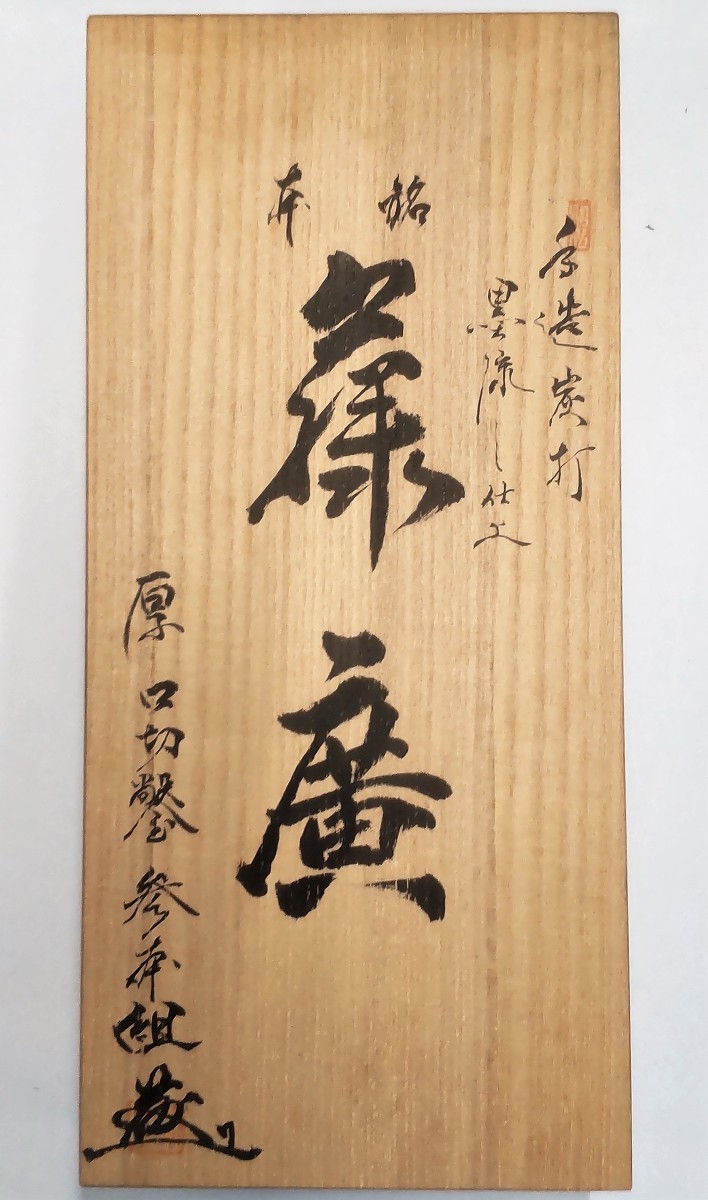 手造炭打
墨流し仕上
本銘
廣
厚口切鑿参本組